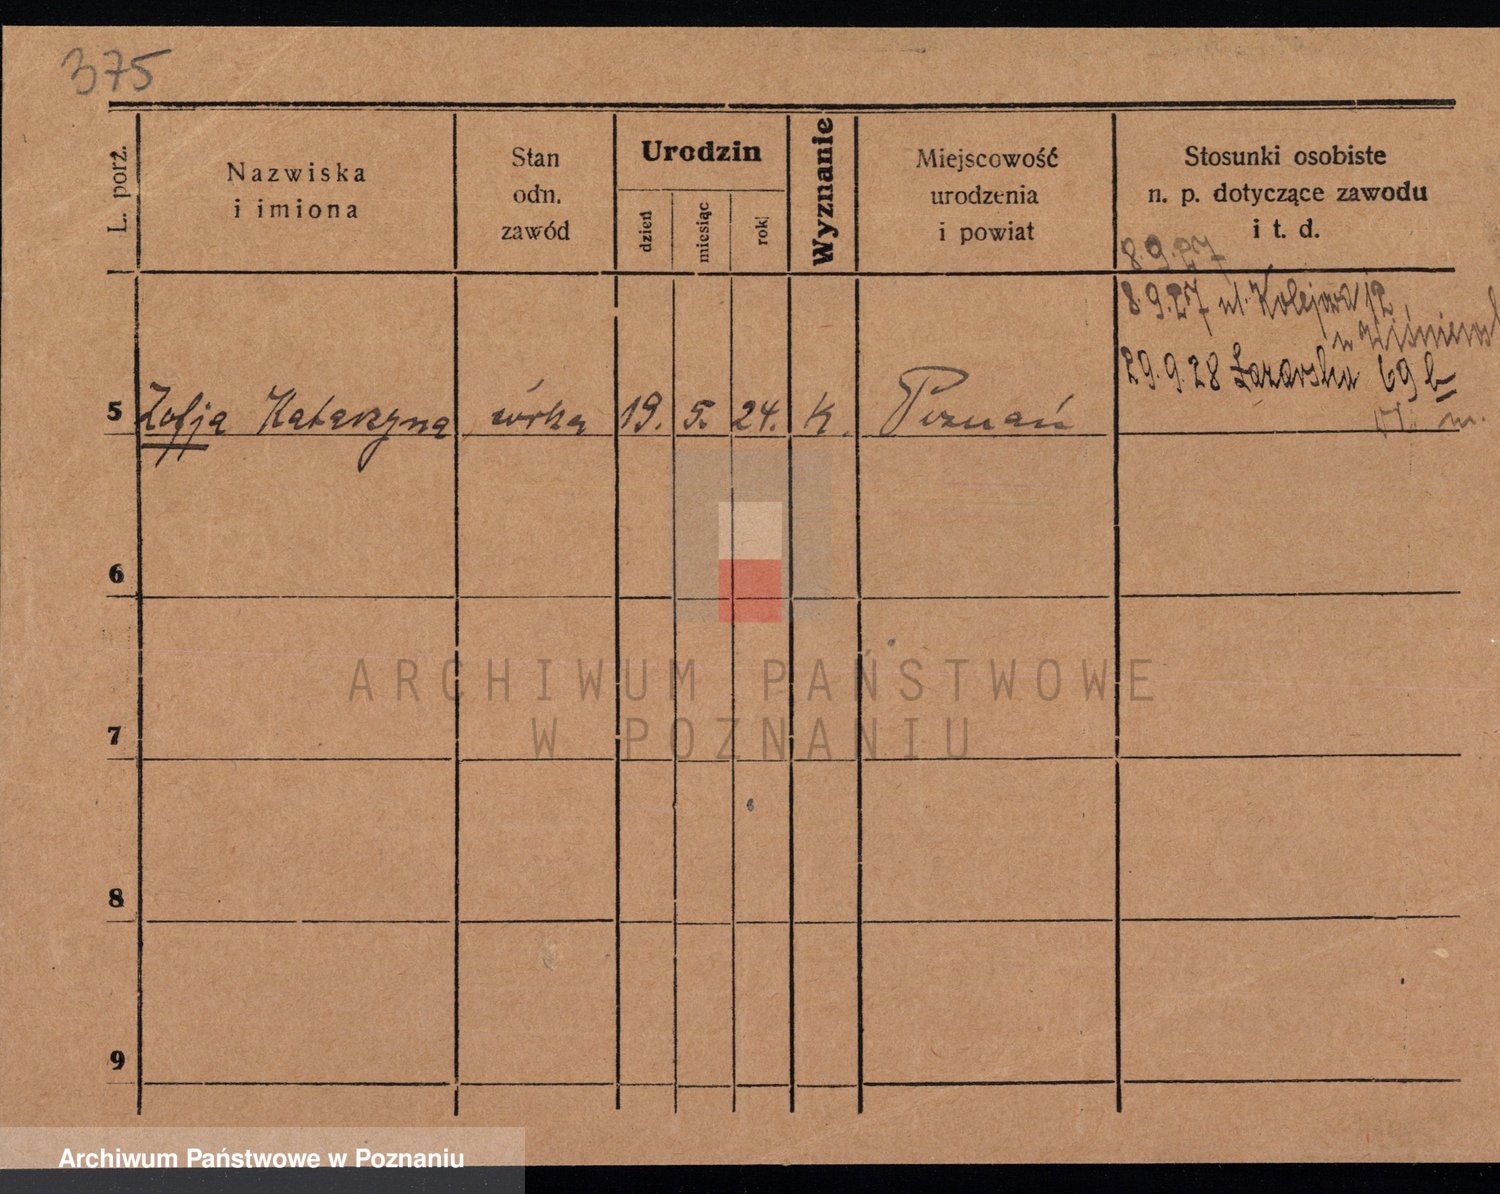 375
L. porz.
Nazwiska
i imiona
Stan
odn.
zawód
Urodzin
dzień
miesiąc
rok
Wyznanie
Miejscowość
urodzenia
i powiat
Stosunki osobiste
n. p. dotyczące zawodu
i t. d.
8.9.27
8.9.27 ul. Kolejowa 12
u Wiśniewsk
29.9.28 Łazarska 69 b
5 Zofja Katarzyna córka 19. 5. 24. K. Poznań
m.
6
ARCHIWUM PAŃSTWOWE
W POZNANIU
7
8
9
Archiwum Państwowe w Poznaniu